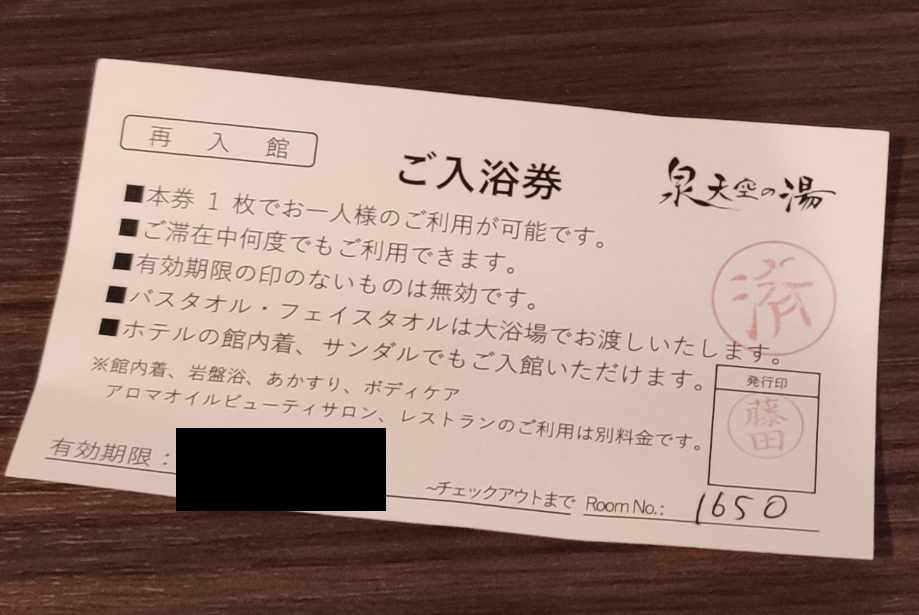 再入館
ご入浴券
泉天空の湯
■本券1枚でお一人様のご利用が可能です。
■ご滞在中何度でもご利用できます。
■有効期限の印のないものは無効です。
■バスタオル・フェイスタオルは大浴場でお渡しいたします。
■ホテルの館内着、サンダルでもご入館いただけます。
※館内着、岩盤浴、あかすり、ボディケア
アロマオイルビューティサロン、レストランのご利用は別料金です。
済
発行印
藤田
有効期限：
~チェックアウトまで Room No.: 1650